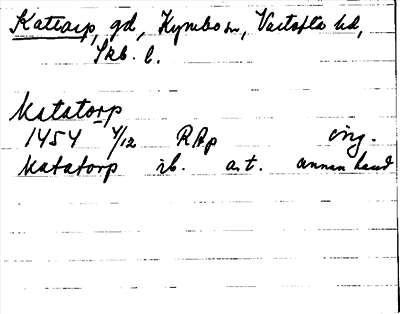 Kattarp, gd, Kymbo sn, Vartofta hd,
Skb. l.
Katatorp
1454 4/12 RAp orig.
Katatorp ib. a.t. annan hand